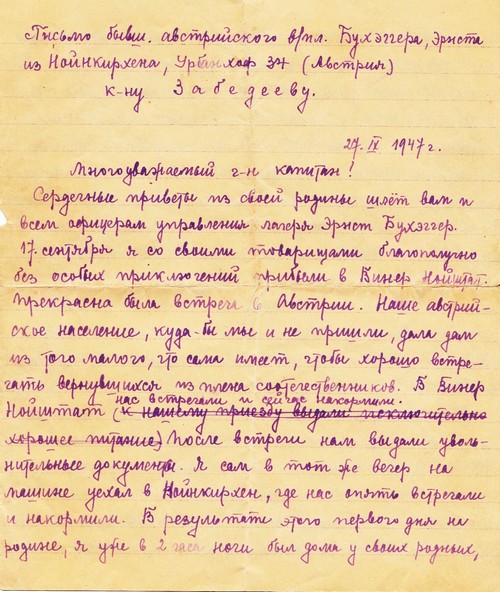 Письмо бывш. австрийского в/пл. Бухэггера, Эрнста
из Нойнкирхена, Урбанхоф 34 (Австрия)
к-ну Забедееву.
27. IX 1947 г.
Многоуважаемый г-н капитан!
Сердечные приветы из своей родины шлёт вам и
всем офицерам управления лагеря Эрнст Бухэггер.
17. сентября я со своими товарищами благополучно
без особых приключений прибыли в Винер Нойштат.
Прекрасна была встреча в Австрии. Наше австрий-
ское население, куда-бы мы и не пришли, дала дам
из того малого, что сама имеет, чтобы хорошо встре-
чать вернувшихся из плена соотечественников. В Винер
нас встречали и сейчас накормили.
Нойштатт (к нашему приезду выдали исключительно
хорошее питание) После встречи нам выдали уволь-
нительные документы. Я сам в тот же вечер на
машине уехал в Нойнкирхен, где нас опять встречали
и накормили. В результате этого первого дня на
родине, я уже в 2 часа ночи был дома у своих родных,